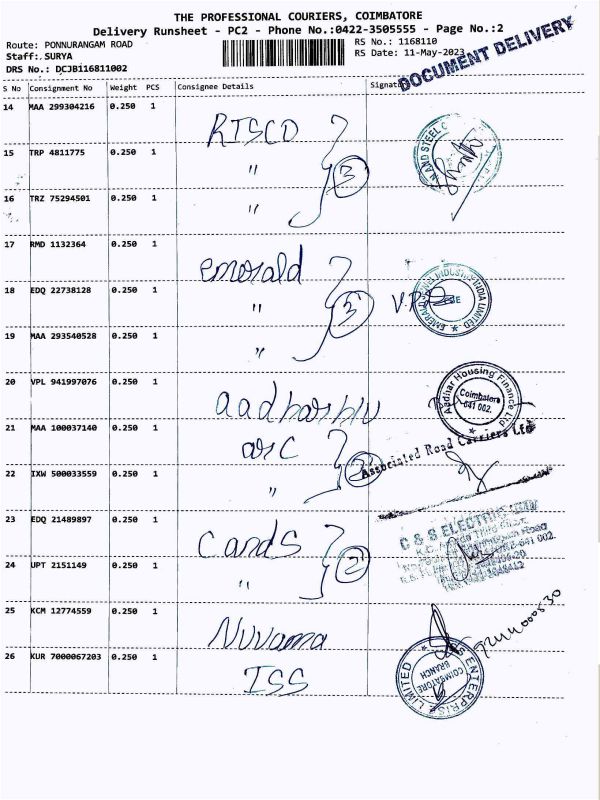 THE PROFESSIONAL COURIERS, COIMBATORE
Delivery Runsheet - PC2 - Phone No.:0422-3505555 - Page No.:2
Route: PONNURANGAM ROAD
RS No.: 1168110
Staff:.SURYA
RS Date: 11-May-2023
DRS No.: DCJB116811002
DOCUMENT DELIVERY
S No Consignment No Weight PCS Consignee Details
14 MAA 299304216 0.250 1 RISCO
15 TRP 4811775 0.250 1 "
3
16 TRZ 75294501 0.250 1 "
17 RMD 1132364 0.250 1 emerald
18 EDQ 22738128 0.250 1 "
3
19 MAA 293540528 0.250 1 "
EMERALD JEWEL INDUSTRY INDIA LIMITED
20 VPL 941997076 0.250 1
Aadhar Housing Finance Ltd
Coimbatore
641 002.
21 MAA 100037140 0.250 1 arc
2
Associated Road Carriers Ltd
22 IXW 500033559 0.250 1 "
23 EDQ 21489897 0.250 1 C and S
C & S ELECTRIC
2
24 UPT 2151149 0.250 1 "
25 KCM 12774559 0.250 1 Nuvama
26 KUR 7000067203 0.250 1 ISS
ENTERPRISE LIMITED
COIMBATORE
BRANCH